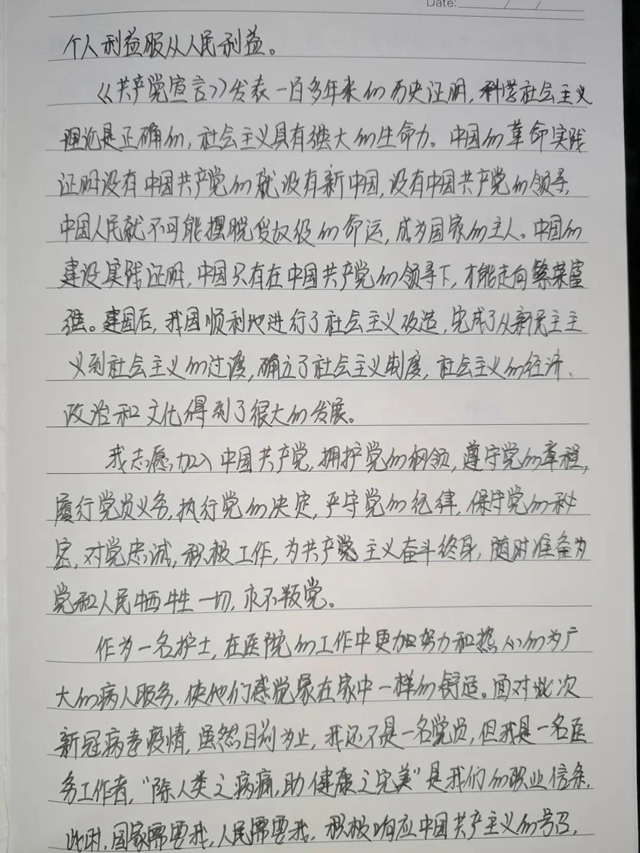 Date: / /
个人利益服从人民利益。
《共产党宣言》发表一百多年来的历史证明,科学社会主义
理论是正确的,社会主义具有强大的生命力。中国的革命实践
证明没有中国共产党的就没有新中国,没有中国共产党的领导,
中国人民就不可能摆脱受奴役的命运,成为国家的主人。中国的
建设实践证明,中国只有在中国共产党的领导下,才能走向繁荣富
强。建国后,我国顺利地进行了社会主义改造,完成了从新民主主
义到社会主义的过渡,确立了社会主义制度,社会主义的经济、
政治和文化得到了很大的发展。
我志愿加入中国共产党,拥护党的纲领,遵守党的章程,
履行党员义务,执行党的决定,严守党的纪律,保守党的秘
密,对党忠诚,积极工作,为共产党主义奋斗终身,随时准备为
党和人民牺牲一切,永不叛党。
作为一名护士,在医院的工作中更加努力和热心的为广
大的病人服务,使他们感觉象在家中一样的舒适。面对此次
新冠病毒疫情,虽然目前为止,我还不是一名党员,但我是一名医
务工作者,“除人类之病痛,助健康之完美”是我们的职业信条,
此时,国家需要我,人民需要我,积极响应中国共产主义的号召,